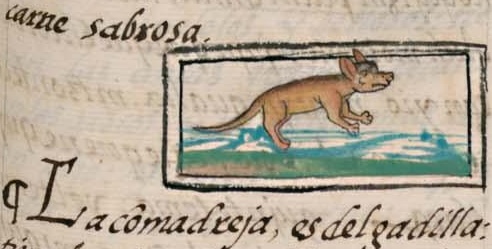 carne sabrosa.
¶ La cômadreja, es delgadilla: